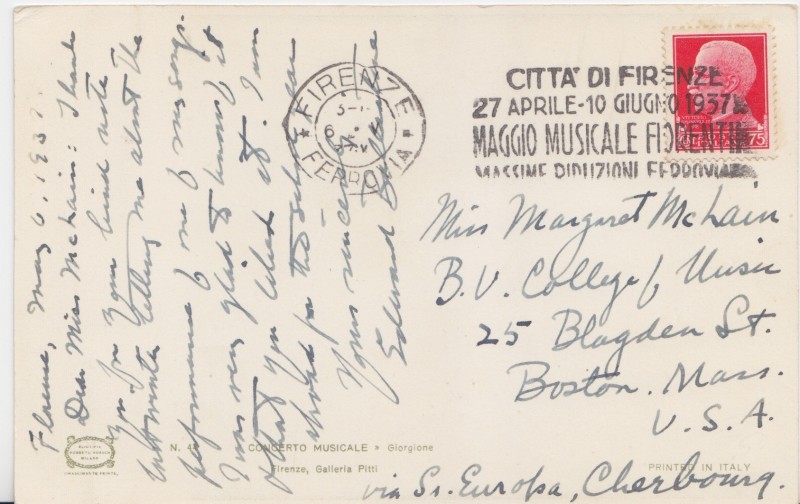 Florence, May 6, 1937.
Dear Miss McLain: Thank
you for your kind note
telling me about the
performance of one of my songs.
I was very glad to know it
& that you liked it. I am
abroad for the school year
Yours sincerely
Edward
FIRENZE
FERROVIA
CITTA' DI FIRENZE
27 APRILE-10 GIUGNO 1937
MAGGIO MUSICALE FIORENTIN
MASSIME RIDUZIONI FERROVIA
75
Miss Margaret McLain
B.U. College of Music
25 Blagden St.
Boston. Mass.
U.S.A.
via Ss. Europa, Cherbourg.
CONCERTO MUSICALE » Giorgione
Firenze, Galleria Pitti
PRINTED IN ITALY